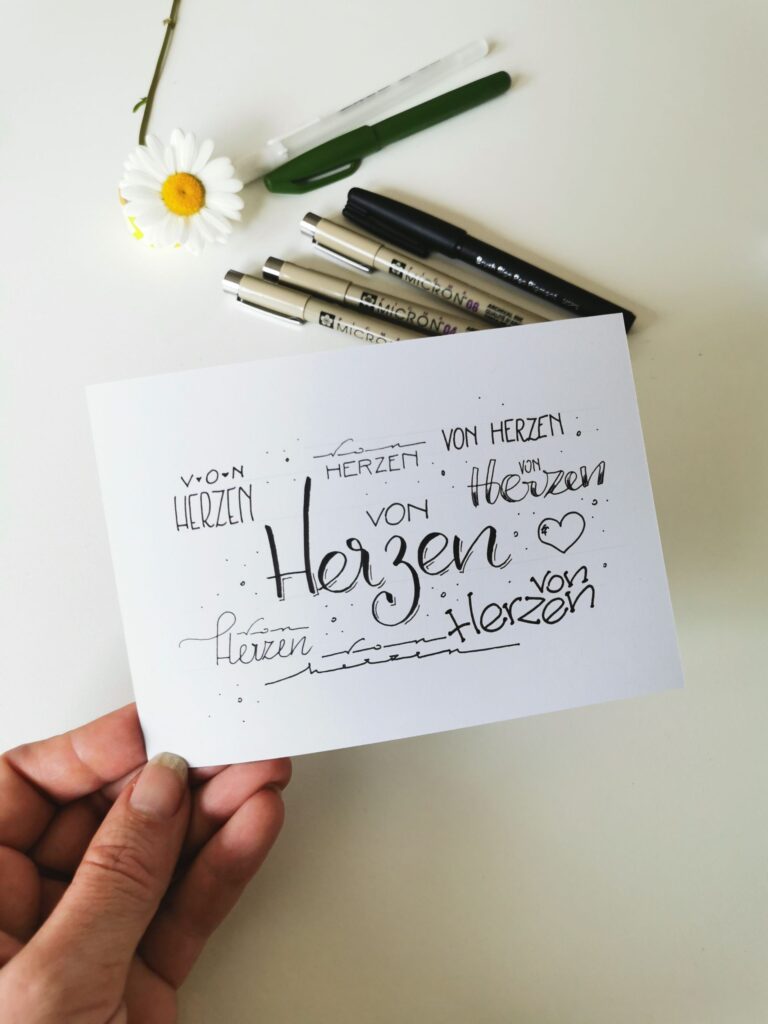 MICRON 08
MICRON 04
MICRON
V•O•N
HERZEN
von
HERZEN
VON HERZEN
VON
Herzen
VON
Herzen
von
Herzen
von
Herzen
von
herzen